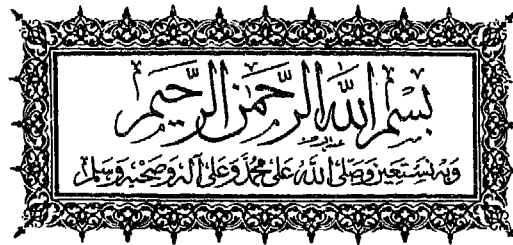 بِسْمِ اللَّهِ الرَّحْمَٰنِ الرَّحِيمِ
وَبِهِ نَسْتَعِينُ وَصَلَّى اللَّهُ عَلَى مُحَمَّدٍ وَعَلَى آلِهِ وَصَحْبِهِ وَسَلَّمَ